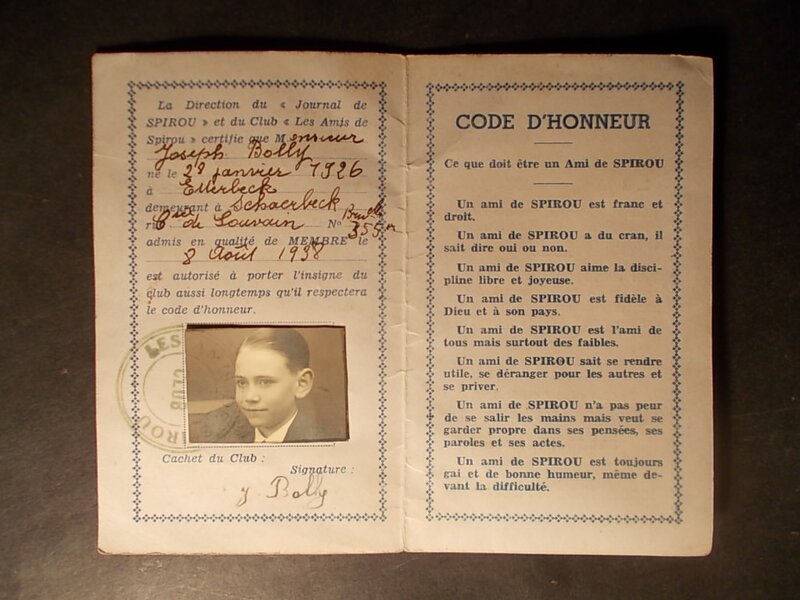 La Direction du « Journal de
SPIROU » et du Club « Les Amis de
Spirou » certifie que Monsieur
Joseph Bolly
né le 28 janvier 1926
à Etterbeck
demeurant à Schaerbeck
de Louvain N° 355
admis en qualité de MEMBRE le
8 Août 1938
est autorisé à porter l'insigne du
club aussi longtemps qu'il respectera
le code d'honneur.
LES
CLUB
SPIROU
Cachet du Club :
Signature :
J Bolly
CODE D'HONNEUR
Ce que doit être un Ami de SPIROU
Un ami de SPIROU est franc et
droit.
Un ami de SPIROU a du cran, il
sait dire oui ou non.
Un ami de SPIROU aime la disci-
pline libre et joyeuse.
Un ami de SPIROU est fidèle à
Dieu et à son pays.
Un ami de SPIROU est l'ami de
tous mais surtout des faibles.
Un ami de SPIROU sait se rendre
utile, se déranger pour les autres et
se priver.
Un ami de SPIROU n'a pas peur
de se salir les mains mais veut se
garder propre dans ses pensées, ses
paroles et ses actes.
Un ami de SPIROU est toujours
gai et de bonne humeur, même de-
vant la difficulté.